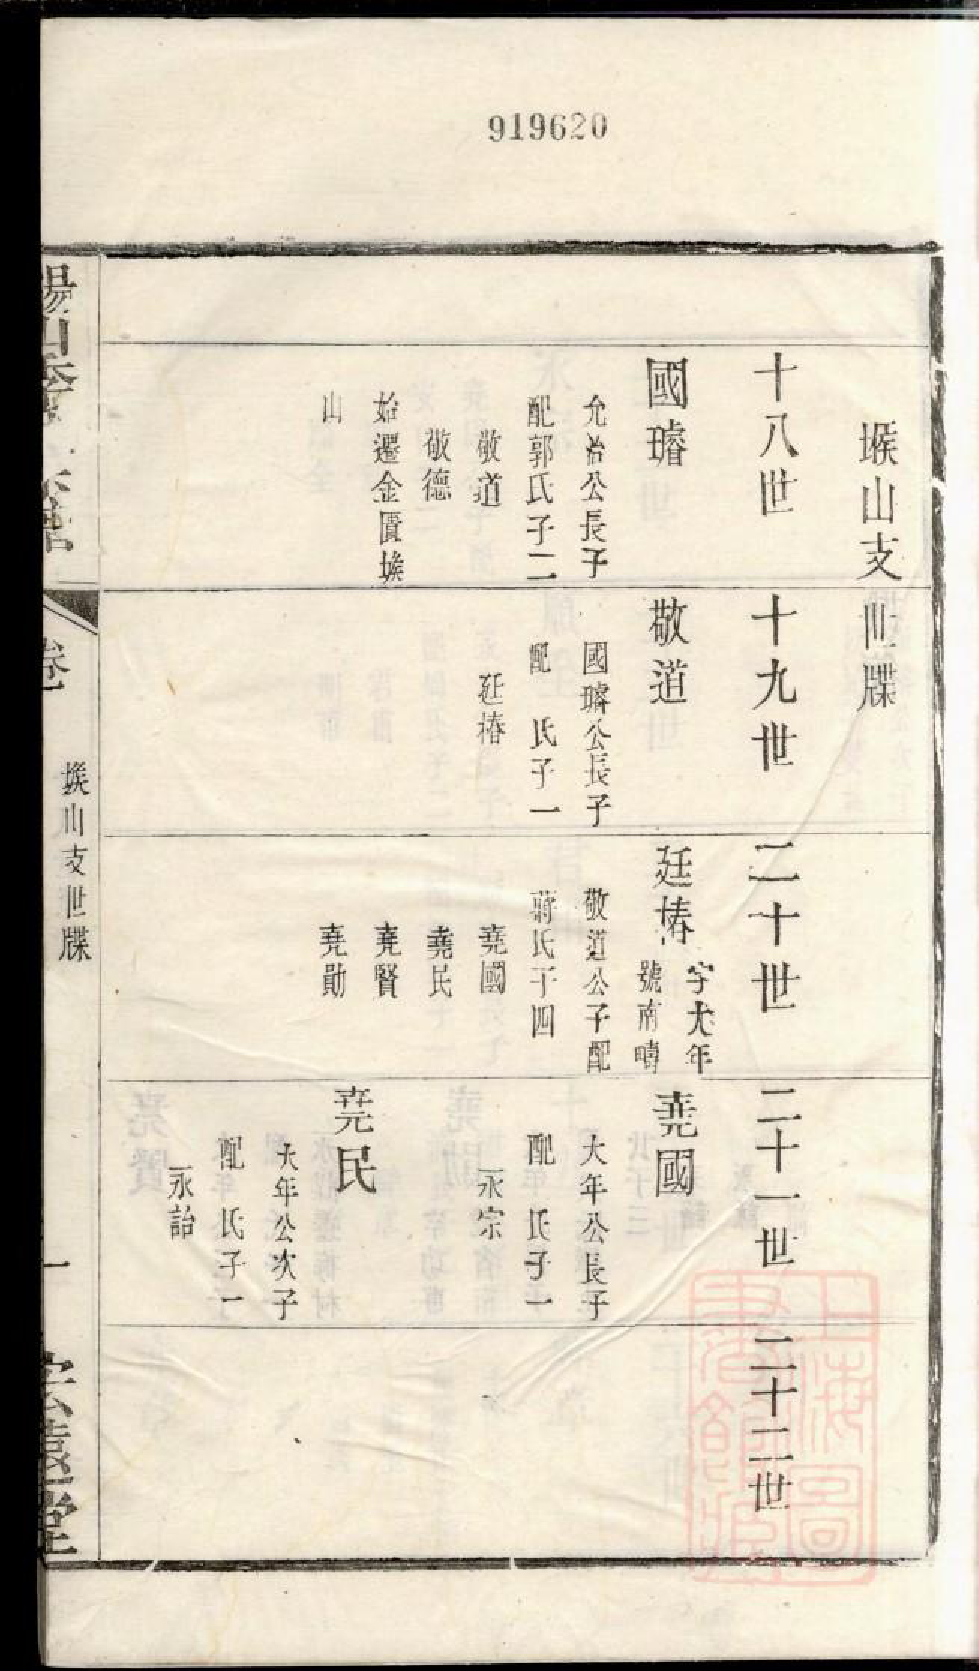 919620
堠山支世牒
十八世
國璿
允治公長子
配郭氏子二
敬道
敬德
始遷金匱堠
山
十九世
敬道
國璿公長子
配　氏子一
廷椿
二十世
廷椿
字大年
號南疇
敬道公子配
蔣氏子四
堯國
堯民
堯賢
堯勛
二十一世
堯國
大年公長子
配　氏子一
永宗
堯民
大年公次子
配　氏子一
永詒
二十二世
卷一
堠山支世牒
一
上海圖書館藏